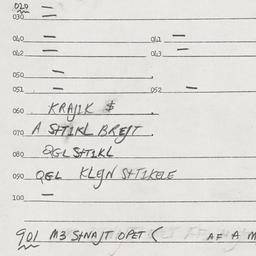 020 —
030
040 — 041 —
042 — 043 —
050 —
051 — 052 —
060 KRAJIK $
070 A SHTIKL BREJT
080 QGL SHTIKL
090 QGL KLEJN SHTIKELE
100 —
901 M3 SHNAJT OPET ( AF A M